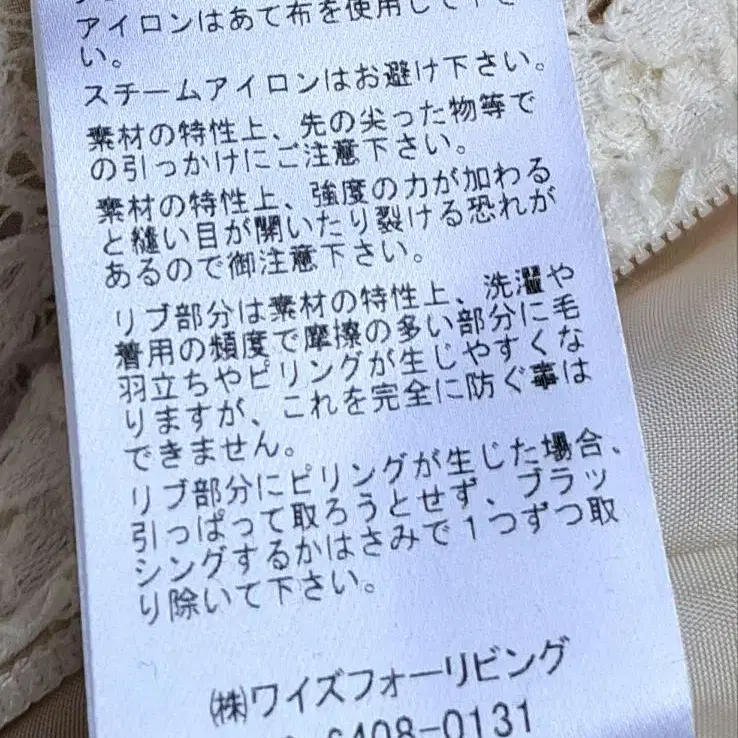 アイロンはあて布を使用して下さ
い。
スチームアイロンはお避け下さい。
素材の特性上、先の尖った物等で
の引っかけにご注意下さい。
素材の特性上、強度の力が加わる
と縫い目が開いたり裂ける恐れが
あるので御注意下さい。
リブ部分は素材の特性上、洗濯や
着用の頻度で摩擦の多い部分に毛
羽立ちやピリングが生じやすくな
りますが、これを完全に防ぐ事は
できません。
リブ部分にピリングが生じた場合、
引っぱって取ろうとせず、ブラッ
シングするかはさみで1つずつ取
り除いて下さい。
㈱ワイズフォーリビング
6408-0131